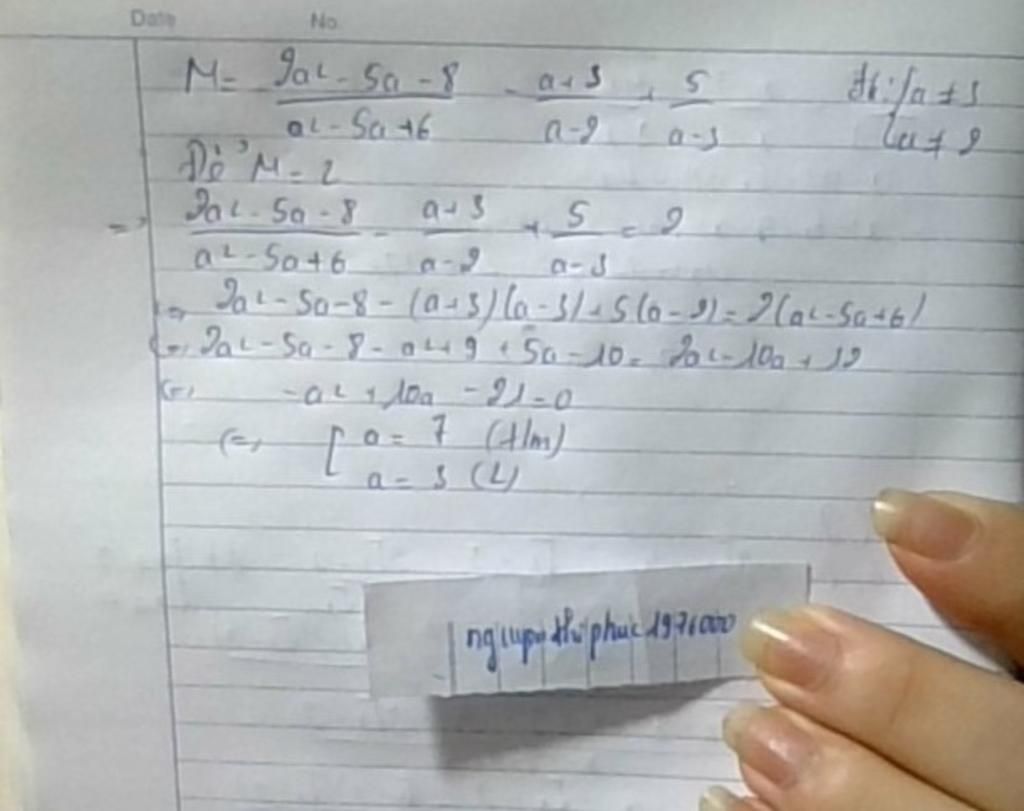 Date No.
M = \frac{2a² - 5a - 8}{a² - 5a + 6} - \frac{a+3}{a-2} + \frac{5}{a-3} đk: { a ≠ 3
a ≠ 2
Để M = 2
=> \frac{2a² - 5a - 8}{a² - 5a + 6} - \frac{a+3}{a-2} + \frac{5}{a-3} = 2
=> 2a² - 5a - 8 - (a+3)(a-3) + 5(a-2) = 2(a² - 5a + 6)
(=) 2a² - 5a - 8 - a² + 9 + 5a - 10 = 2a² - 10a + 12
(=) -a² + 10a - 21 = 0
(=) [ a = 7 (t/m)
a = 3 (L)
nguyen thi phuc 1976000